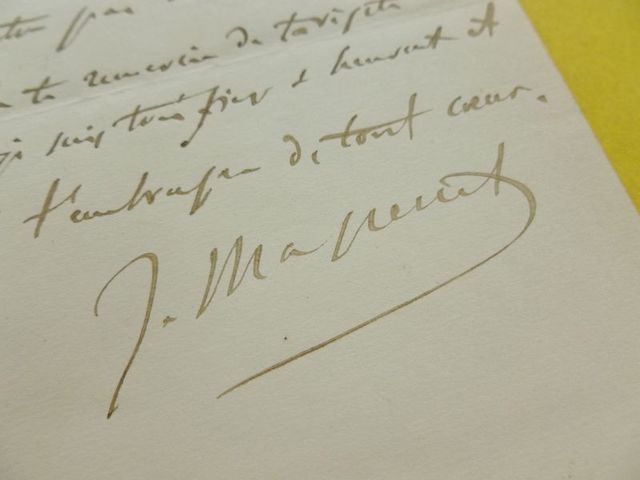 pas
te remercie de ta visite
je suis très fier & heureux et
t'embrasse de tout cœur.
J. Massenet